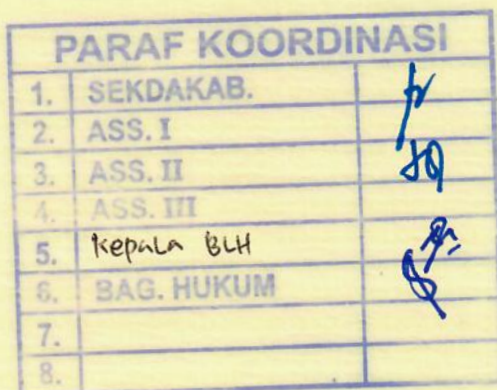 PARAF KOORDINASI
1. SEKDAKAB.
2. ASS. I
3. ASS. II
4. ASS. III
5. Kepala BLH
6. BAG. HUKUM
7.
8.